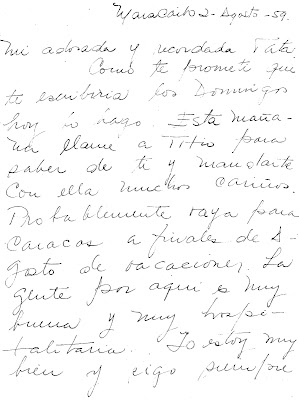 Maracaibo 2-Agosto-59.
Mi adorada y recordada Tata
Como te prometi que
te escribiria los Domingos
hoy lo hago. Esta maña-
na llame a Titio para
saber de ti y mandarte
Con ella muchos cariños.
Probablemente vaya para
Caracas a finales de A-
gosto de vacaciones. La
gente por aqui es muy
buena y muy hospi-
talitaria. Yo estoy muy
bien y sigo siempre